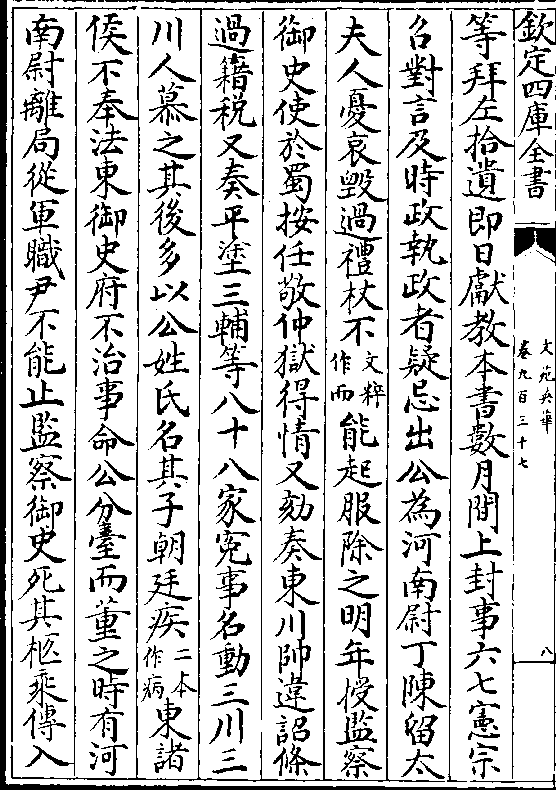 欽定四庫全書
文苑英華
卷九百三十七
八
等拜左拾遺即日獻教本書數月間上封事六七憲宗
召對言及時政執政者疑忌出公為河南尉丁陳留太
夫人憂哀毀過禮杖不文粹作而能起服除之明年授監察
御史使於蜀按任敬仲獄得情又劾奏東川帥違詔條
過籍税又奏平塗三輔等八十八家寃事名動三川三
川人慕之其後多以公姓氏名其子朝廷疾二本作病東諸
侯不奉法東御史府不治事命公分臺而董之時有河
南尉離局從軍職尹不能止監察御史死其柩乘傳入